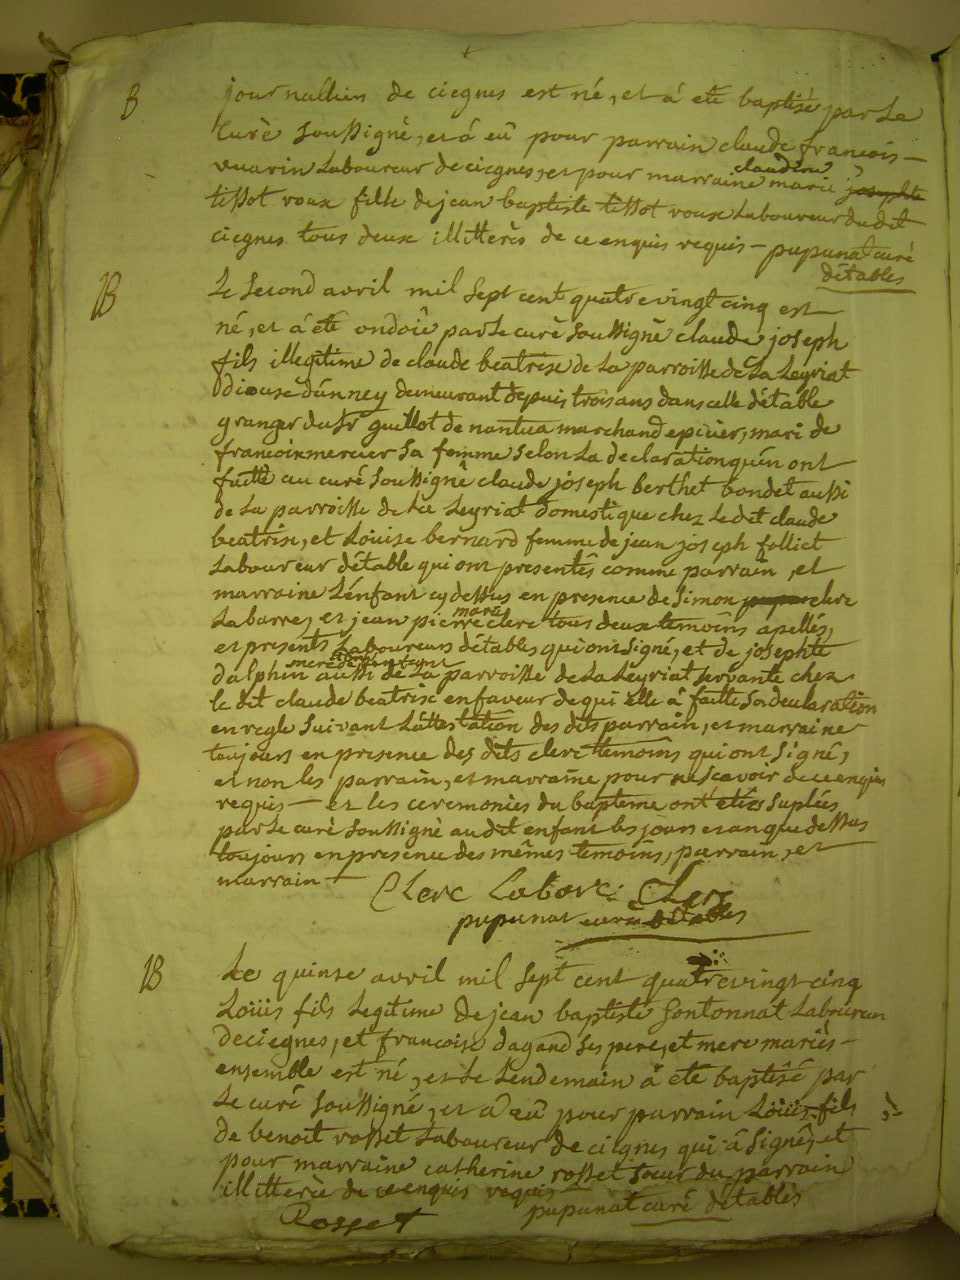 B journallier de ciegnes est né, et á eté baptisé par Le
Curé soussigné, et á eû pour parrain claude françois
vuarin Laboureur de ciegnes, et pour marraine marie josephte
claudine
tissot roux fille de jean baptiste tissot roux Laboureur du dit
ciegnes tous deux illitterés de ce enquis requis — pupunat curé
détables
B Le second avril mil sept cent quatrevingt cinq est
né, et á eté ondoié par Le curé soussigné claude joseph
fils illegitime de claude beatrix de La parroisse de La Leyriat
diocese dánney demeurant depuis trois ans dans celle détable
granger du Sr guillot de nantua marchand epicier, mari de
francoise mercier sa femme selon La declaration quén ont
faitte au curé soussigné claude joseph berthet bondet aussi
de La parroisse de La Leyriat domestique chez Ledit claude
beatrix, et Louise bernard femme de jean joseph folliet
Laboureur détable qui ont presentés comme parrain, et
marraine Lénfant cy dessus en presence de Simon clerc
Labarre, et jean pierre clerc tous deux temoins apellés,
marie
et presents Laboureurs détables, qui ont signé, et de josephte
dalphin aussi de La parroisse de La Leyriat servante chez
mere de
le dit claude beatrix en faveur de qui elle á faitte sa declaration
en regle suivant Láttestation des dits parrain, et marraine
toujours en presence des dits clerc temoins qui ont signé,
et non les parrain, et marraine pour ne scavoir de ce enquis
requis — et les ceremonies du bapteme ont etés suplées
par Le curé soussigné au dit enfant les jour et an que dessus
toujours en presence des mêmes temoins, parrain, et
marrain Clerc Labare. Clerc
pupunat curé détables
B Le quinse avril mil sept cent quatrevingt cinq
Loüis fils Legitime de jean baptiste Gontonnat Laboureur
de ciegnes, et francoise dagand ses pere, et mere mariés
ensemble est né, et Le Lendemain á eté baptisé par
Le curé soussigné, et á eû pour parrain Loüis fils
de benoit rosset Laboureur de ciegnes qui á signé, et
pour marraine catherine rosset soeur du parrain
illitterée de ce enquis requis
pupunat curé détables
Rosset